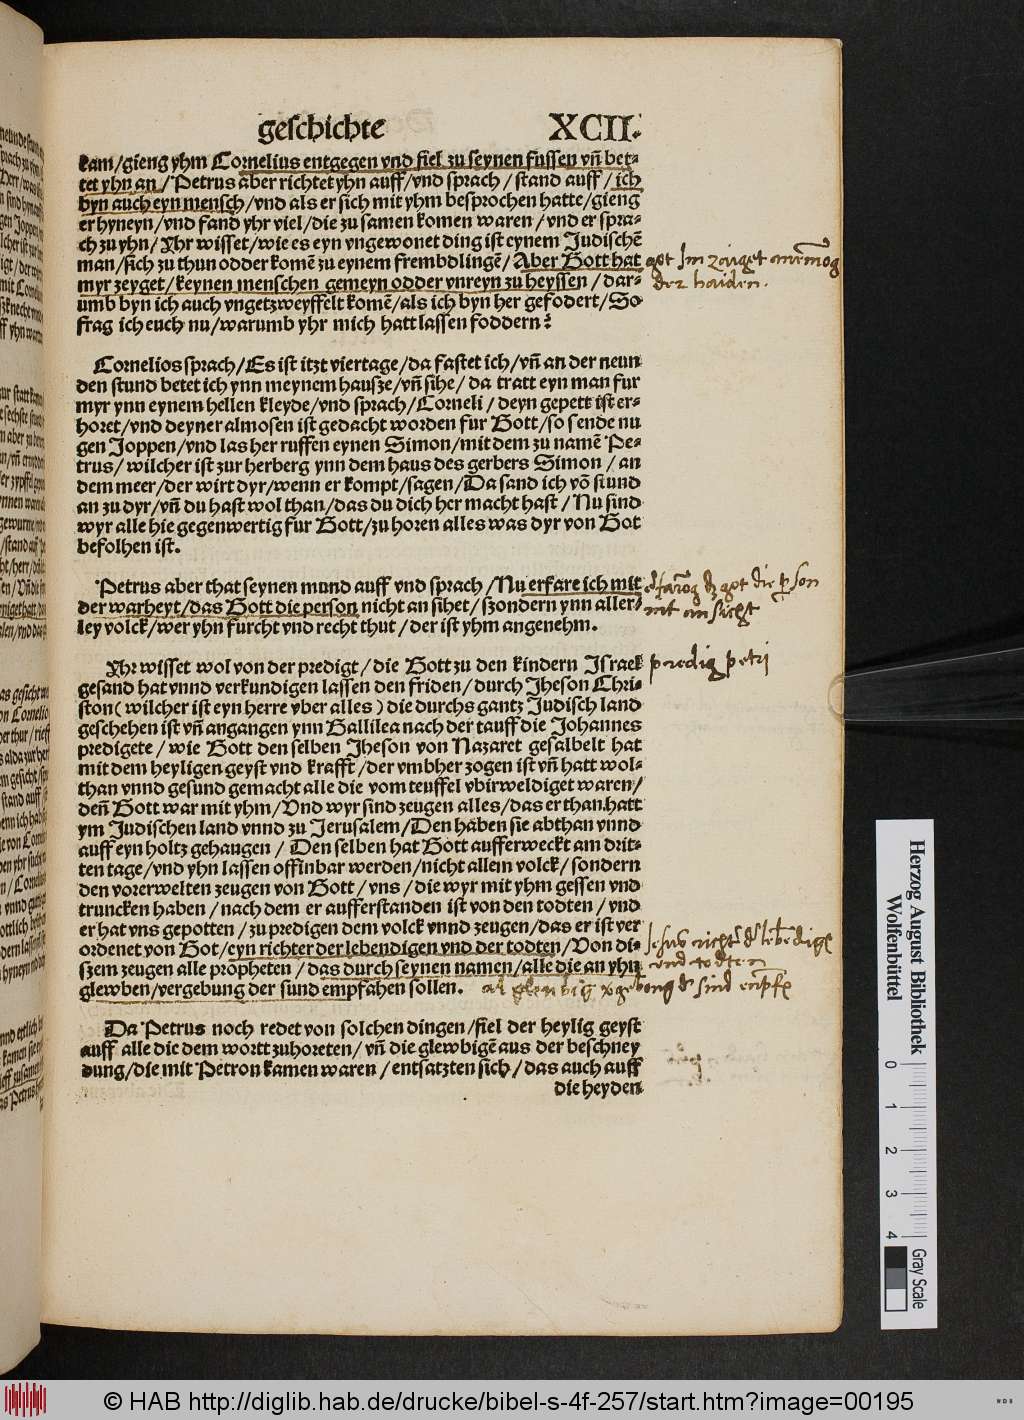 geschichte XCII.
kam/gieng yhm Cornelius entgegen vnd fiel zu seynen fussen vñ bet-
tet yhn an/Petrus aber richtet yhn auff/vnd sprach/stand auff/ich
byn auch eyn mensch/vnd als er sich mit yhm besprochen hatte/gieng
er hyneyn/vnd fand yhr viel/die zu samen komen waren/vnd er spra-
ch zu yhn/Yhr wisset/wie es eyn vngewonet ding ist eynem Judischẽ
man/sich zu thun odder komẽ zu eynem frembdlingẽ/Aber Gott hat
myr zeyget/keynen menschen gemeyn odder vnreyn zu heyssen/dar-
umb byn ich auch vngetzweyffelt komẽ/als ich byn her gefodert/So
frag ich euch nu/warumb yhr mich hatt lassen foddern?
der haiden.
Cornelios sprach/Es ist itzt viertage/da fastet ich/vñ an der neun
den stund betet ich ynn meynem hausze/vñ sihe/da tratt eyn man fur
myr ynn eynem hellen kleyde/vnd sprach/Corneli/deyn gepett ist er-
horet/vnd deyner almosen ist gedacht worden fur Gott/so sende nu
gen Joppen/vnd las her ruffen eynen Simon/mit dem zu namẽ Pe-
trus/wilcher ist zur herberg ynn dem haus des gerbers Simon/an
dem meer/der wirt dyr/wenn er kompt/sagen/Da sand ich võ stund
an zu dyr/vñ du hast wol than/das du dich her macht hast/Nu sind
wyr alle hie gegenwertig fur Gott/zu horen alles was dyr von Got
befolhen ist.
Petrus aber that seynen mund auff vnd sprach/Nu erfare ich mit
der warheyt/das Gott die person nicht an sihet/szondern ynn aller-
ley volck/wer yhn furcht vnd recht thut/der ist yhm angenehm.
nit ansicht
Yhr wisset wol von der predigt/die Gott zu den kindern Israel
gesand hat vnnd verkundigen lassen den friden/durch Jheson Chri-
ston(wilcher ist eyn herre vber alles)die durchs gantz Judisch land
geschehen ist vñ angangen ynn Gallilea nach der tauff die Johannes
predigete/wie Gott den selben Jheson von Nazaret gesalbelt hat
mit dem heyligen geyst vnd krafft/der vmbher zogen ist vñ hatt wol-
than vnnd gesund gemacht alle die vom teuffel vbirweldiget waren/
deñ Gott war mit yhm/Vnd wyr sind zeugen alles/das er than hatt
ym Judischen land vnnd zu Jerusalem/Den haben sie abthan vnnd
auff eyn holtz gehangen/Den selben hat Gott aufferweckt am drit-
ten tage/vnd yhn lassen offinbar werden/nicht allem volck/sondern
den vorerwelten zeugen von Gott/vns/die wyr mit yhm gessen vnd
truncken haben/nach dem er aufferstanden ist von den todten/vnd
er hat vns gepotten/zu predigen dem volck vnnd zeugen/das er ist ver
ordenet von Got/eyn richter der lebendigen vnd der todten/Von di-
szem zeugen alle propheten/das durch seynen namen/alle die an yhn
glewben/vergebung der sund empfahen sollen.
predig petri
vnd todten
Da Petrus noch redet von solchen dingen/fiel der heylig geyst
auff alle die dem wortt zuhoreten/vñ die glewbigẽ aus der beschney
dung/die mit Petron kamen waren/entsatzten sich/das auch auff
die heyden
Herzog August Bibliothek
Wolfenbüttel
0 1 2 3 4
Gray Scale
© HAB http://diglib.hab.de/drucke/bibel-s-4f-257/start.htm?image=00195